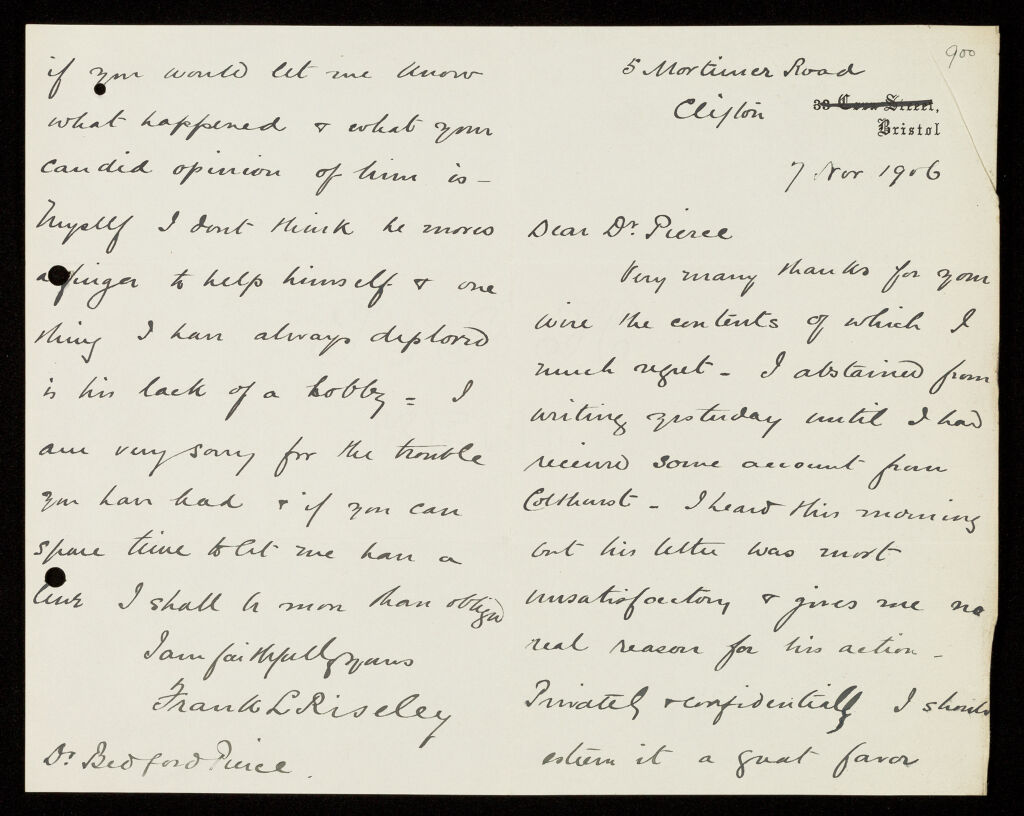 900
5 Mortimer Road
Clifton
38 Corn Street,
Bristol
7 Nov 1906
Dear Dr. Pierce
Very many thanks for your
wire the contents of which I
much regret - I abstained from
writing yesterday until I had
received some account from
Colthurst - I heard this morning
but his letter was most
unsatisfactory & gives me no
real reason for his action -
Privately & confidentially I should
esteem it a great favor
if you would let me know
what happened & what your
candid opinion of him is -
Myself I dont think he moves
a finger to help himself & one
thing I have always deplored
is his lack of a hobby = I
am very sorry for the trouble
you have had & if you can
spare time to let me have a
line I shall be more than obliged
I am faithfully yours
Frank L Riseley
Dr. Bedford Pierce.